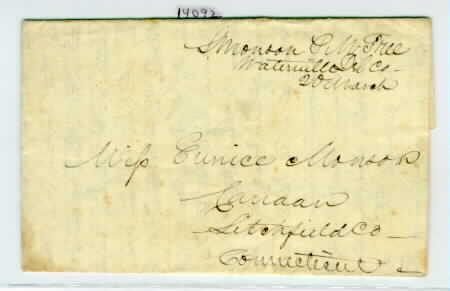 14092
S Monson P M Free
Waterville Del Co -
20 March
Miss Eunice Monson
Canaan
Litchfield Co -
Connecticut -